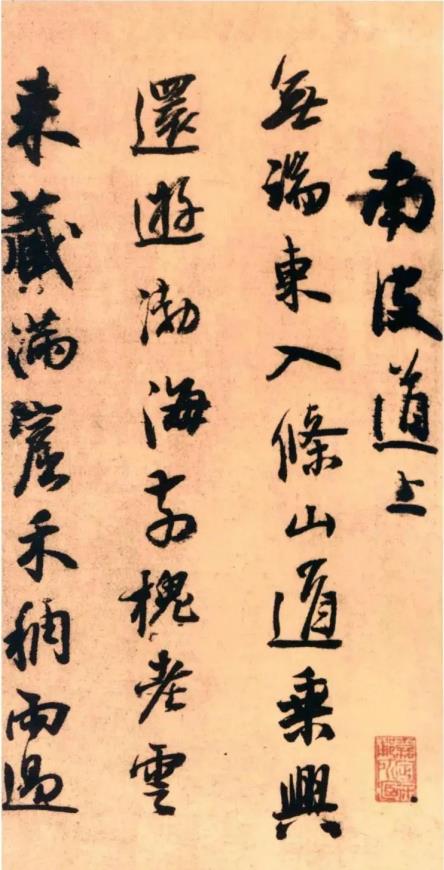 南皮道上
無端東入條山道乘興
還遊渤海槐老雲
來藏滿禾稠雨過